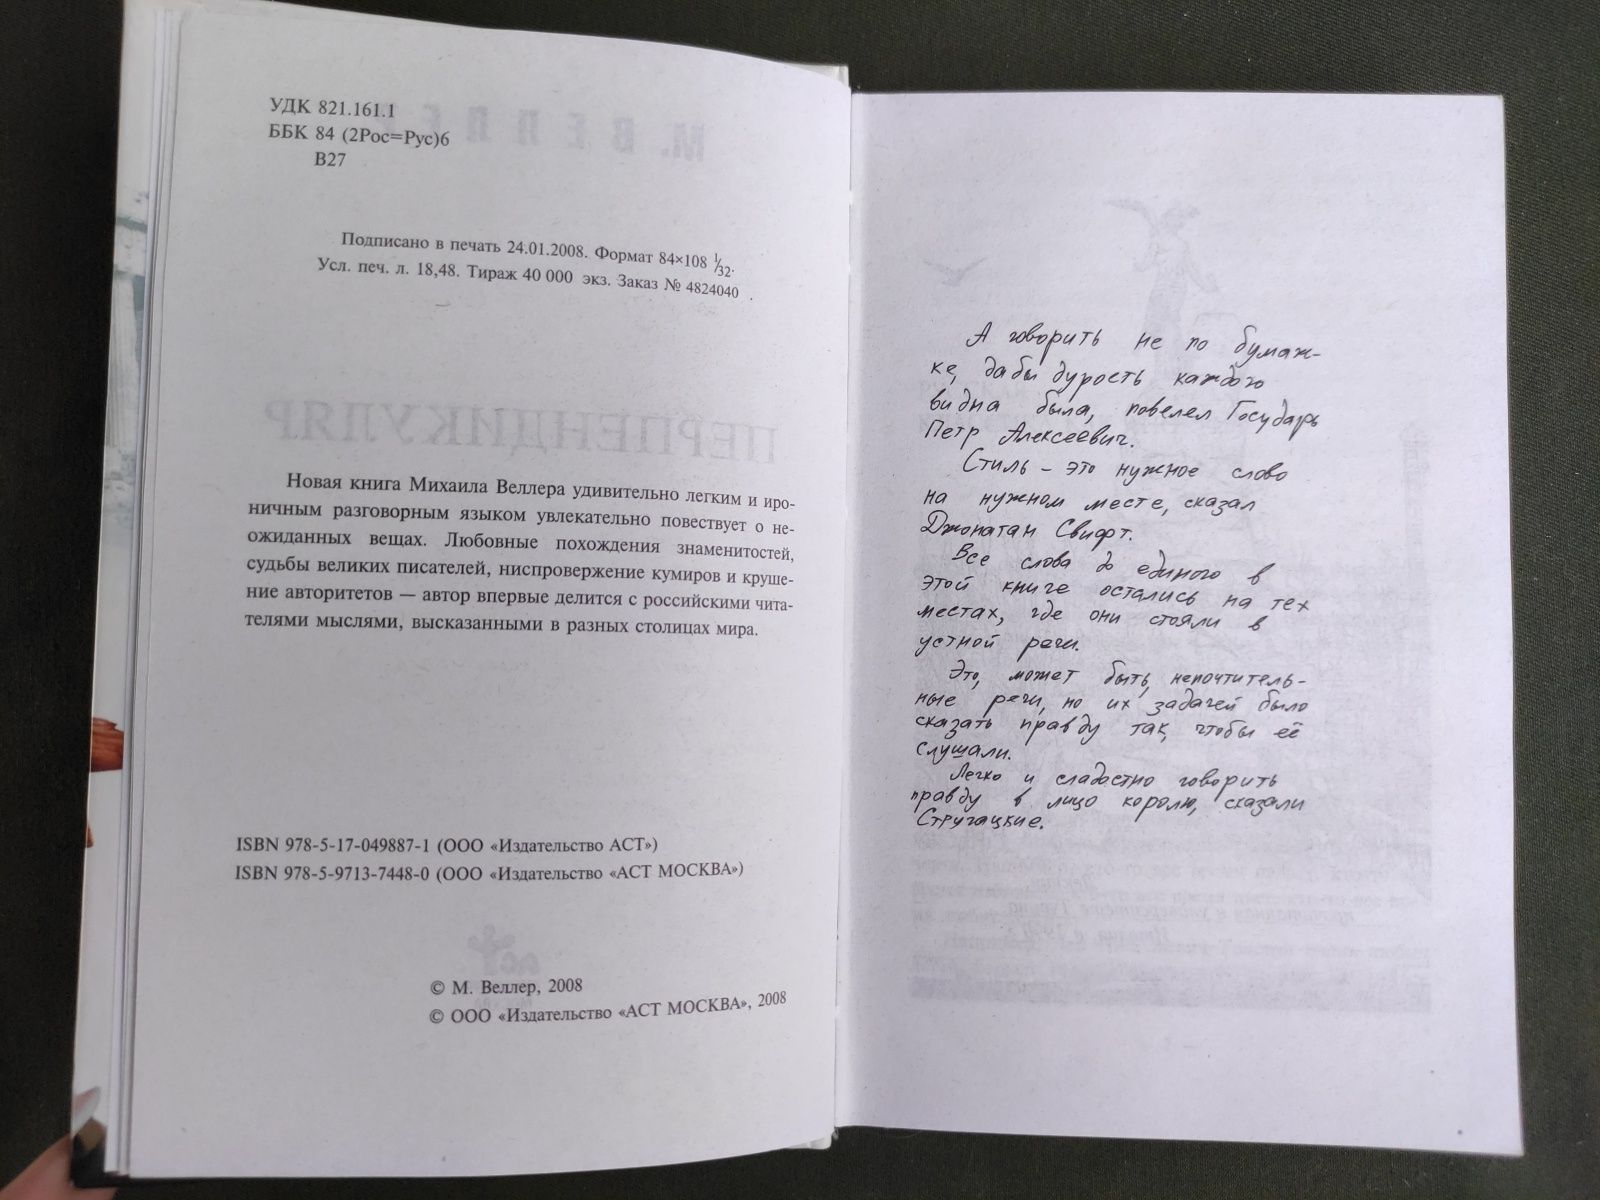 УДК 821.161.1
ББК 84 (2Рос=Рус)6
В27
Подписано в печать 24.01.2008. Формат 84×108 1/32.
Усл. печ. л. 18,48. Тираж 40 000 экз. Заказ № 4824040 .
Новая книга Михаила Веллера удивительно легким и иро-
ничным разговорным языком увлекательно повествует о не-
ожиданных вещах. Любовные похождения знаменитостей,
судьбы великих писателей, ниспровержение кумиров и круше-
ние авторитетов — автор впервые делится с российскими чита-
телями мыслями, высказанными в разных столицах мира.
ISBN 978-5-17-049887-1 (ООО «Издательство АСТ»)
ISBN 978-5-9713-7448-0 (ООО «Издательство «АСТ МОСКВА»)
© М. Веллер, 2008
© ООО «Издательство «АСТ МОСКВА», 2008
А говорить не по бумаж-
ке, дабы дурость каждого
видна была, повелел Государь
Петр Алексеевич.
Стиль – это нужное слово
на нужном месте, сказал
Джонатан Свифт.
Все слова до единого в
этой книге остались на тех
местах, где они стояли в
устной речи.
Это, может быть, непочтитель-
ные речи, но их задачей было
сказать правду так, чтобы её
слушали.
Легко и сладостно говорить
правду в лицо королю, сказали
Стругацкие.